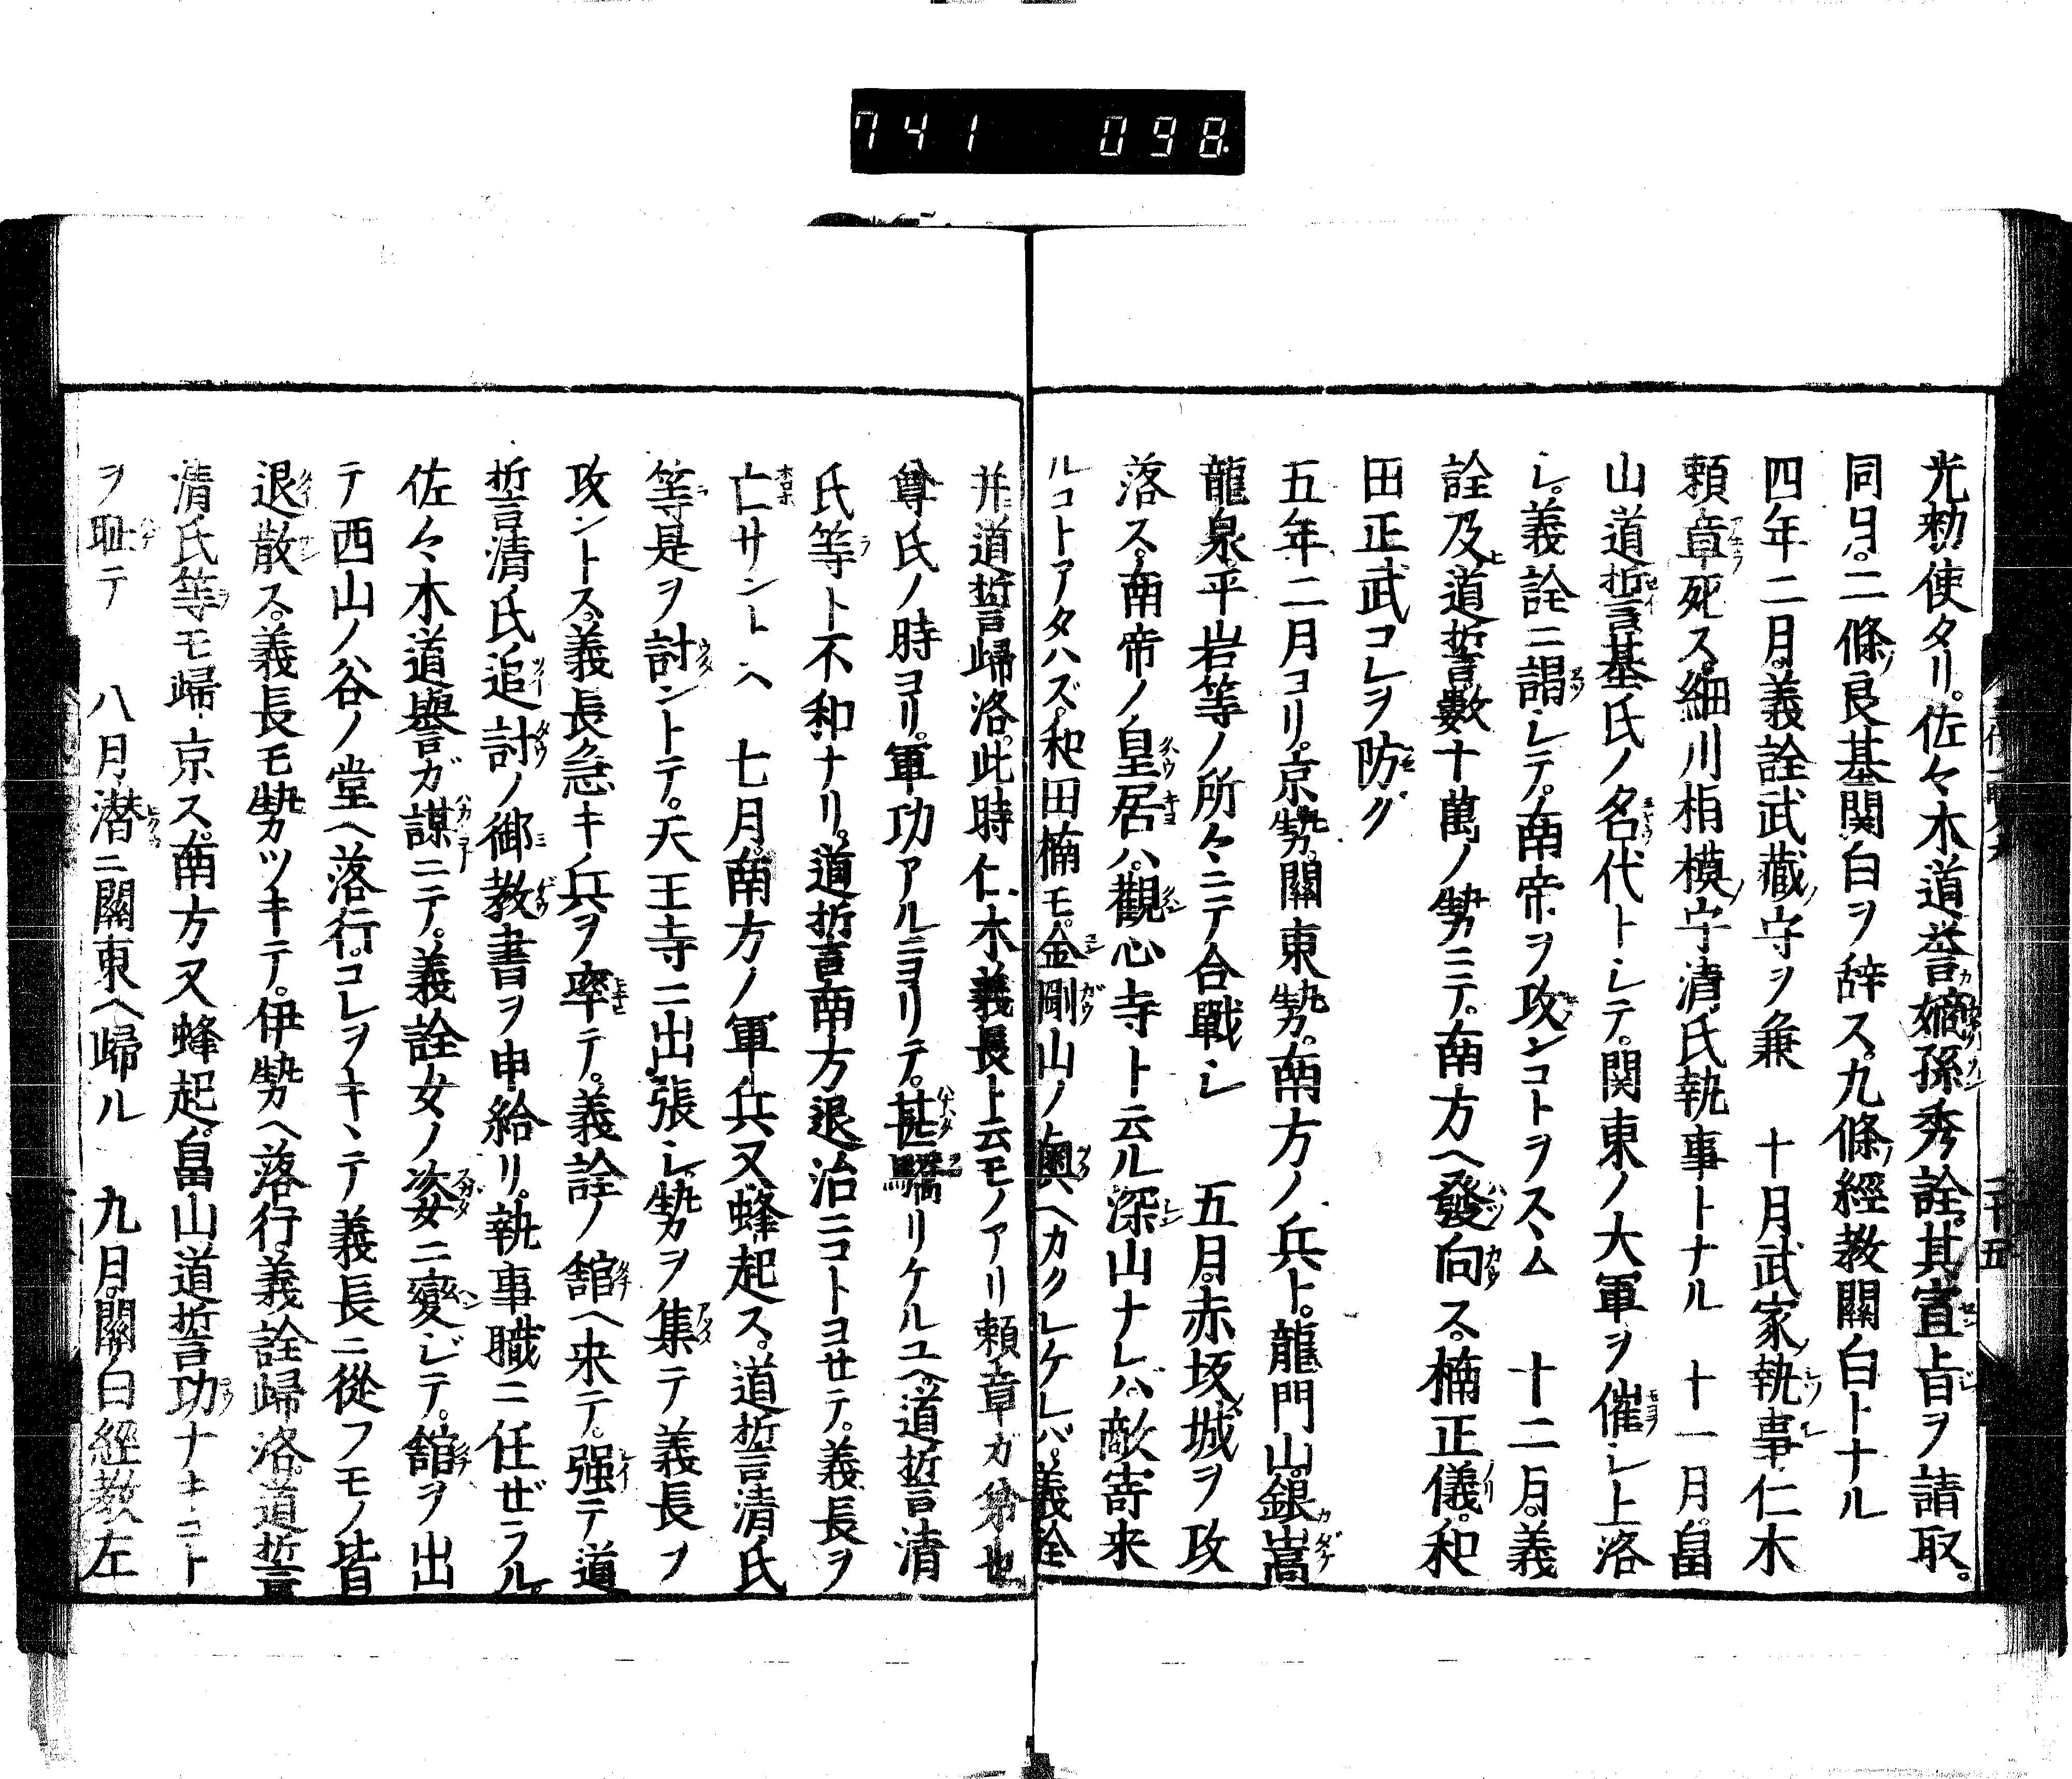 741 098
光勅使タリ。佐々木道誉嫡孫秀詮。其宣旨ヲ請取。
同月。二條良基関白ヲ辞ス。九條經教關白トナル
四年二月。義詮武藏守ヲ兼　十月武家執事仁木
頼章死ス。細川相模守清氏執事トナル　十一月。畠
山道誓基氏ノ名代トシテ。関東ノ大軍ヲ催シ上洛
シ。義詮ニ謁シテ。南帝ヲ攻ンコトヲスヽム　十二月。義
詮及道誓數十萬ノ勢ニテ。南方ヘ發向ス。楠正儀。和
田正武コレヲ防グ
五年二月ヨリ。京勢。關東勢。南方ノ兵ト。龍門山。銀嵩
龍泉。平岩等ノ所々ニテ合戰シ　五月。赤坂城ヲ攻
落ス。南帝ノ皇居ハ。觀心寺ト云ル深山ナレバ。敵寄来
ルコトアタハズ。和田楠モ。金剛山ノ奥ヘカクレケレバ。義詮
并道誓歸洛。此時仁木義長ト云モノアリ頼章ガ弟也
尊氏ノ時ヨリ。軍功アルニヨリテ。甚驕リケルユヘ。道誓清
氏等ト不和ナリ。道誓南方退治ニコトヨセテ。義長ヲ
亡サントヘ　七月。南方ノ軍兵又蜂起ス。道誓清氏
等是ヲ討ントテ。天王寺ニ出張シ。勢ヲ集テ義長ヲ
攻ントス。義長急キ兵ヲ率テ。義詮ノ舘ヘ来テ。强テ道
誓清氏追討ノ御教書ヲ申給リ。執事職ニ任ぜラル。
佐々木道譽ガ謀ニテ。義詮女ノ姿ニ變ジテ。舘ヲ出
テ西山ノ谷ノ堂ヘ落行。コレヲキヽテ義長ニ從フモノ皆
退散ス。義長モ勢ツキテ。伊勢ヘ落行。義詮歸洛。道誓
清氏等モ歸京ス。南方又蜂起。畠山道誓功ナキコト
ヲ耻テ　八月潜ニ關東ヘ歸ル　九月。關白經教左